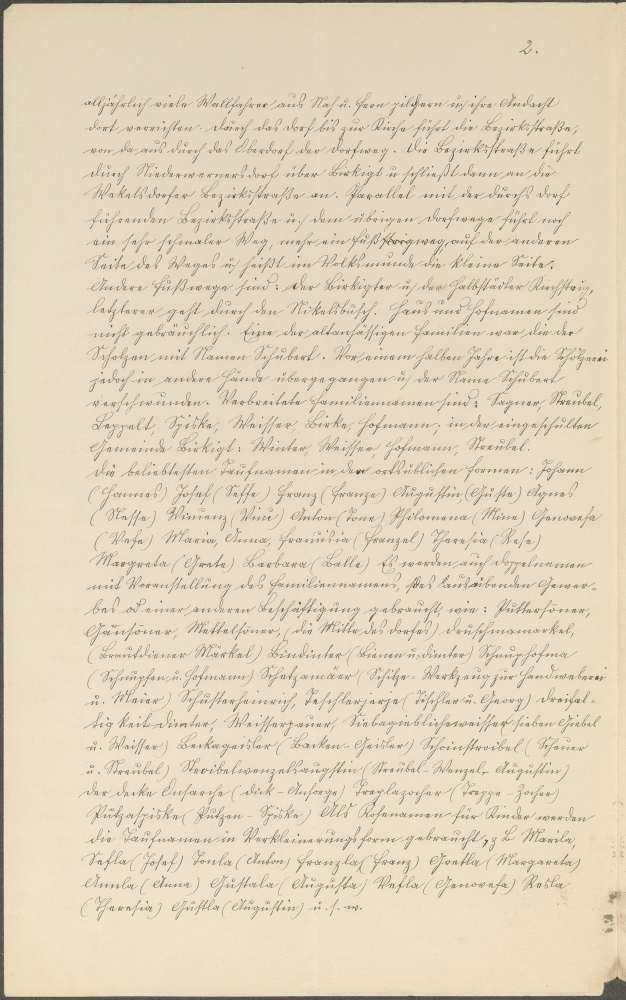 2.
alljährlich viele Wallfahrer aus Nah u. Fern pilgern u. ihre Andacht
dort verrichten. Durch das Dorf bis zur Kirche führt die Bezirksstraße,
von da aus durch das Oberdorf der Dorfweg. Die Bezirksstraße führt
durch Niederwernersdorf über Birkigt u. schließt dann an die
Wekelsdorfer Bezirksstraße an. Parallel mit der durchs Dorf
führenden Bezirksstraße u. dem übrigen Dorfwege führt noch
ein sehr schmaler Weg, mehr ein Fußsteigweg, auf der anderen
Seite des Weges u. heißt im Volksmunde die kleine Seite.
Andere Fußwege sind: Der Birkigter u. der Halbstädter Kirchsteig,
letzterer geht durch den Nikelsbusch. Haus und Hofnamen sind
nicht gebräuchlich. Eine der altansässigen Familien war die der
Scholzen mit Namen Schubert. Vor einem halben Jahre ist die Scholzerei
jedoch in andere Hände übergegangen u. der Name Schubert
verschwunden. Verbreitete Familiennamen sind: Sagner, Streubel,
Teppelt, Spiske, Weisser Birke, Hofmann; in der eingeschulten
Gemeinde Birkigt: Winter, Weisser Hofmann, Streubel.
Die beliebtesten Taufnamen in den ortsüblichen Formen: Johann
(Hannes) Josef (Seffe) Franz (Franze) Augustin (Guste) Agnes
(Nesse) Vinzenz (Vinz) Anton (Tone) Philomena (Mine) Genovefa
(Vefe) Maria, Anna, Franziska (Franzel) Theresia (Rese)
Margreta (Grete) Barbara (Balle) Es werden auch Doppelnamen
mit Voranstellung des Familiennamens, des auszuübenden Gewer-
bes od einer anderen Beschäftigung gebraucht, wie: Puttersoner,
Gänsoner, Mettelsoner, (die Mitte des Dorfes) Druschmamarkel,
(Brautdiener Markel) Bindinter (Bienen u. Dinter) Schnuphofma
(Schnupfen u. Hofmann) Schetzamäer (Schitze - Werkzeug zur Handweberei
u. Meier) Schusterheinrich, Teschlerjerje (Tischler u. Georg) Dreifal-
tigkeit Dinter, Weisserpauer, Siebagieblicheweisser sieben Giebel
u. Weisser) Beckageisler (Becken-Geisler) Schoinstroibel (Scheuer
u. Streubel) Stroibelwenzelsaugstin (Streubel-Wenzel-Augustin)
der decke Ansarche (dick-Ansorge) Treplazocher (Treppe-Zocher)
Putzaspiske (Putzen-Spiske) Als Kosenamen für Kinder werden
die Taufnamen in Verkleinerungsform gebraucht, z B Marila,
Sefla (Josef) Tonla (Anton) Franzla (Franz) Gretla (Margareta)
Annla (Anna) Gustala (Augusta) Vefla (Genovefa) Resla
(Theresia) Gustla (Augustin) u. s. w.